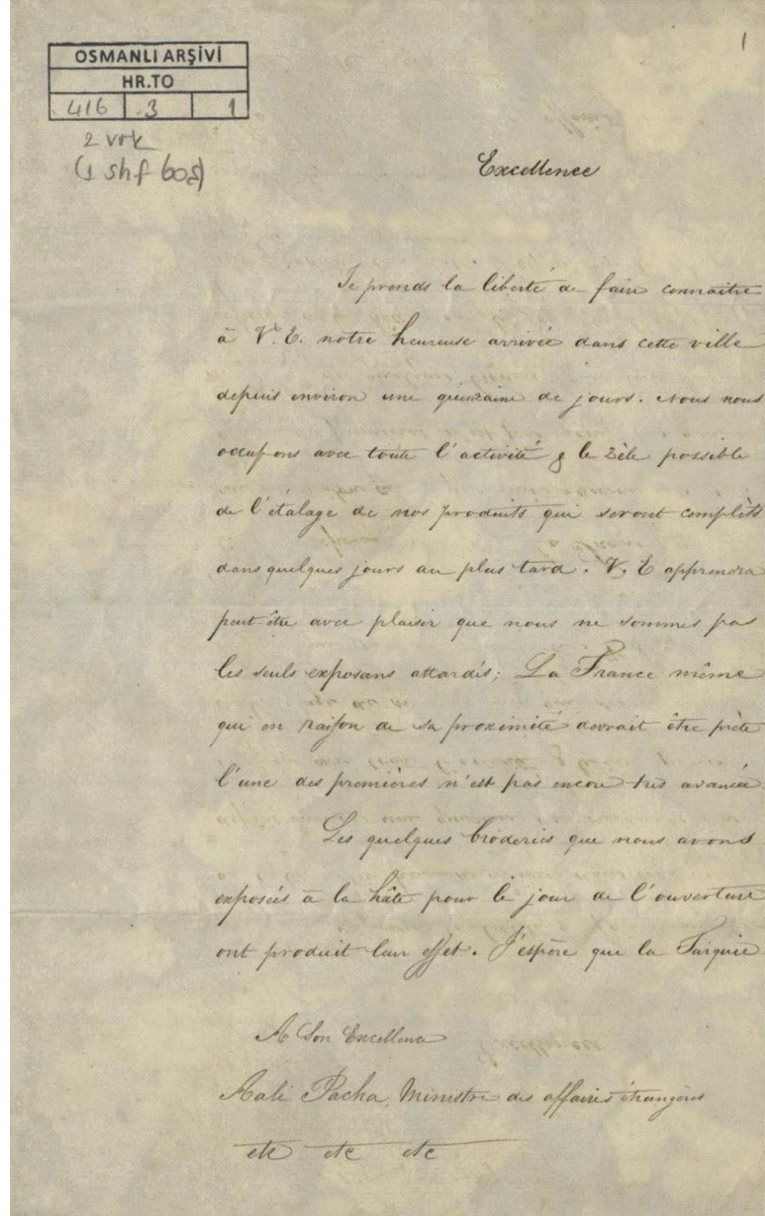 1
OSMANLI ARŞİVİ
HR.TO
416 3 1
2 vrk
(1 shf boş)
Excellence
Je prends la liberté de faire connaître
à V. E. notre heureuse arrivée dans cette ville
depuis environ une quinzaine de jours. Nous nous
occupons avec toute l'activité & le zèle possible
de l'étalage de nos produits qui seront complèts
dans quelques jours au plus tard. V. E apprendra
peut être avec plaisir que nous ne sommes pas
les seuls exposans attardés; La France même
qui en raison de sa proximité devrait être prète
l'une des premières n'est pas encore très avancée
Les quelques broderies que nous avons
exposés à la hâte pour le jour de l'ouverture
ont produit leur effet. J'espère que la Turquie
A Son Excellence
Aali Pacha, Ministre des affaires étrangères
etc etc etc